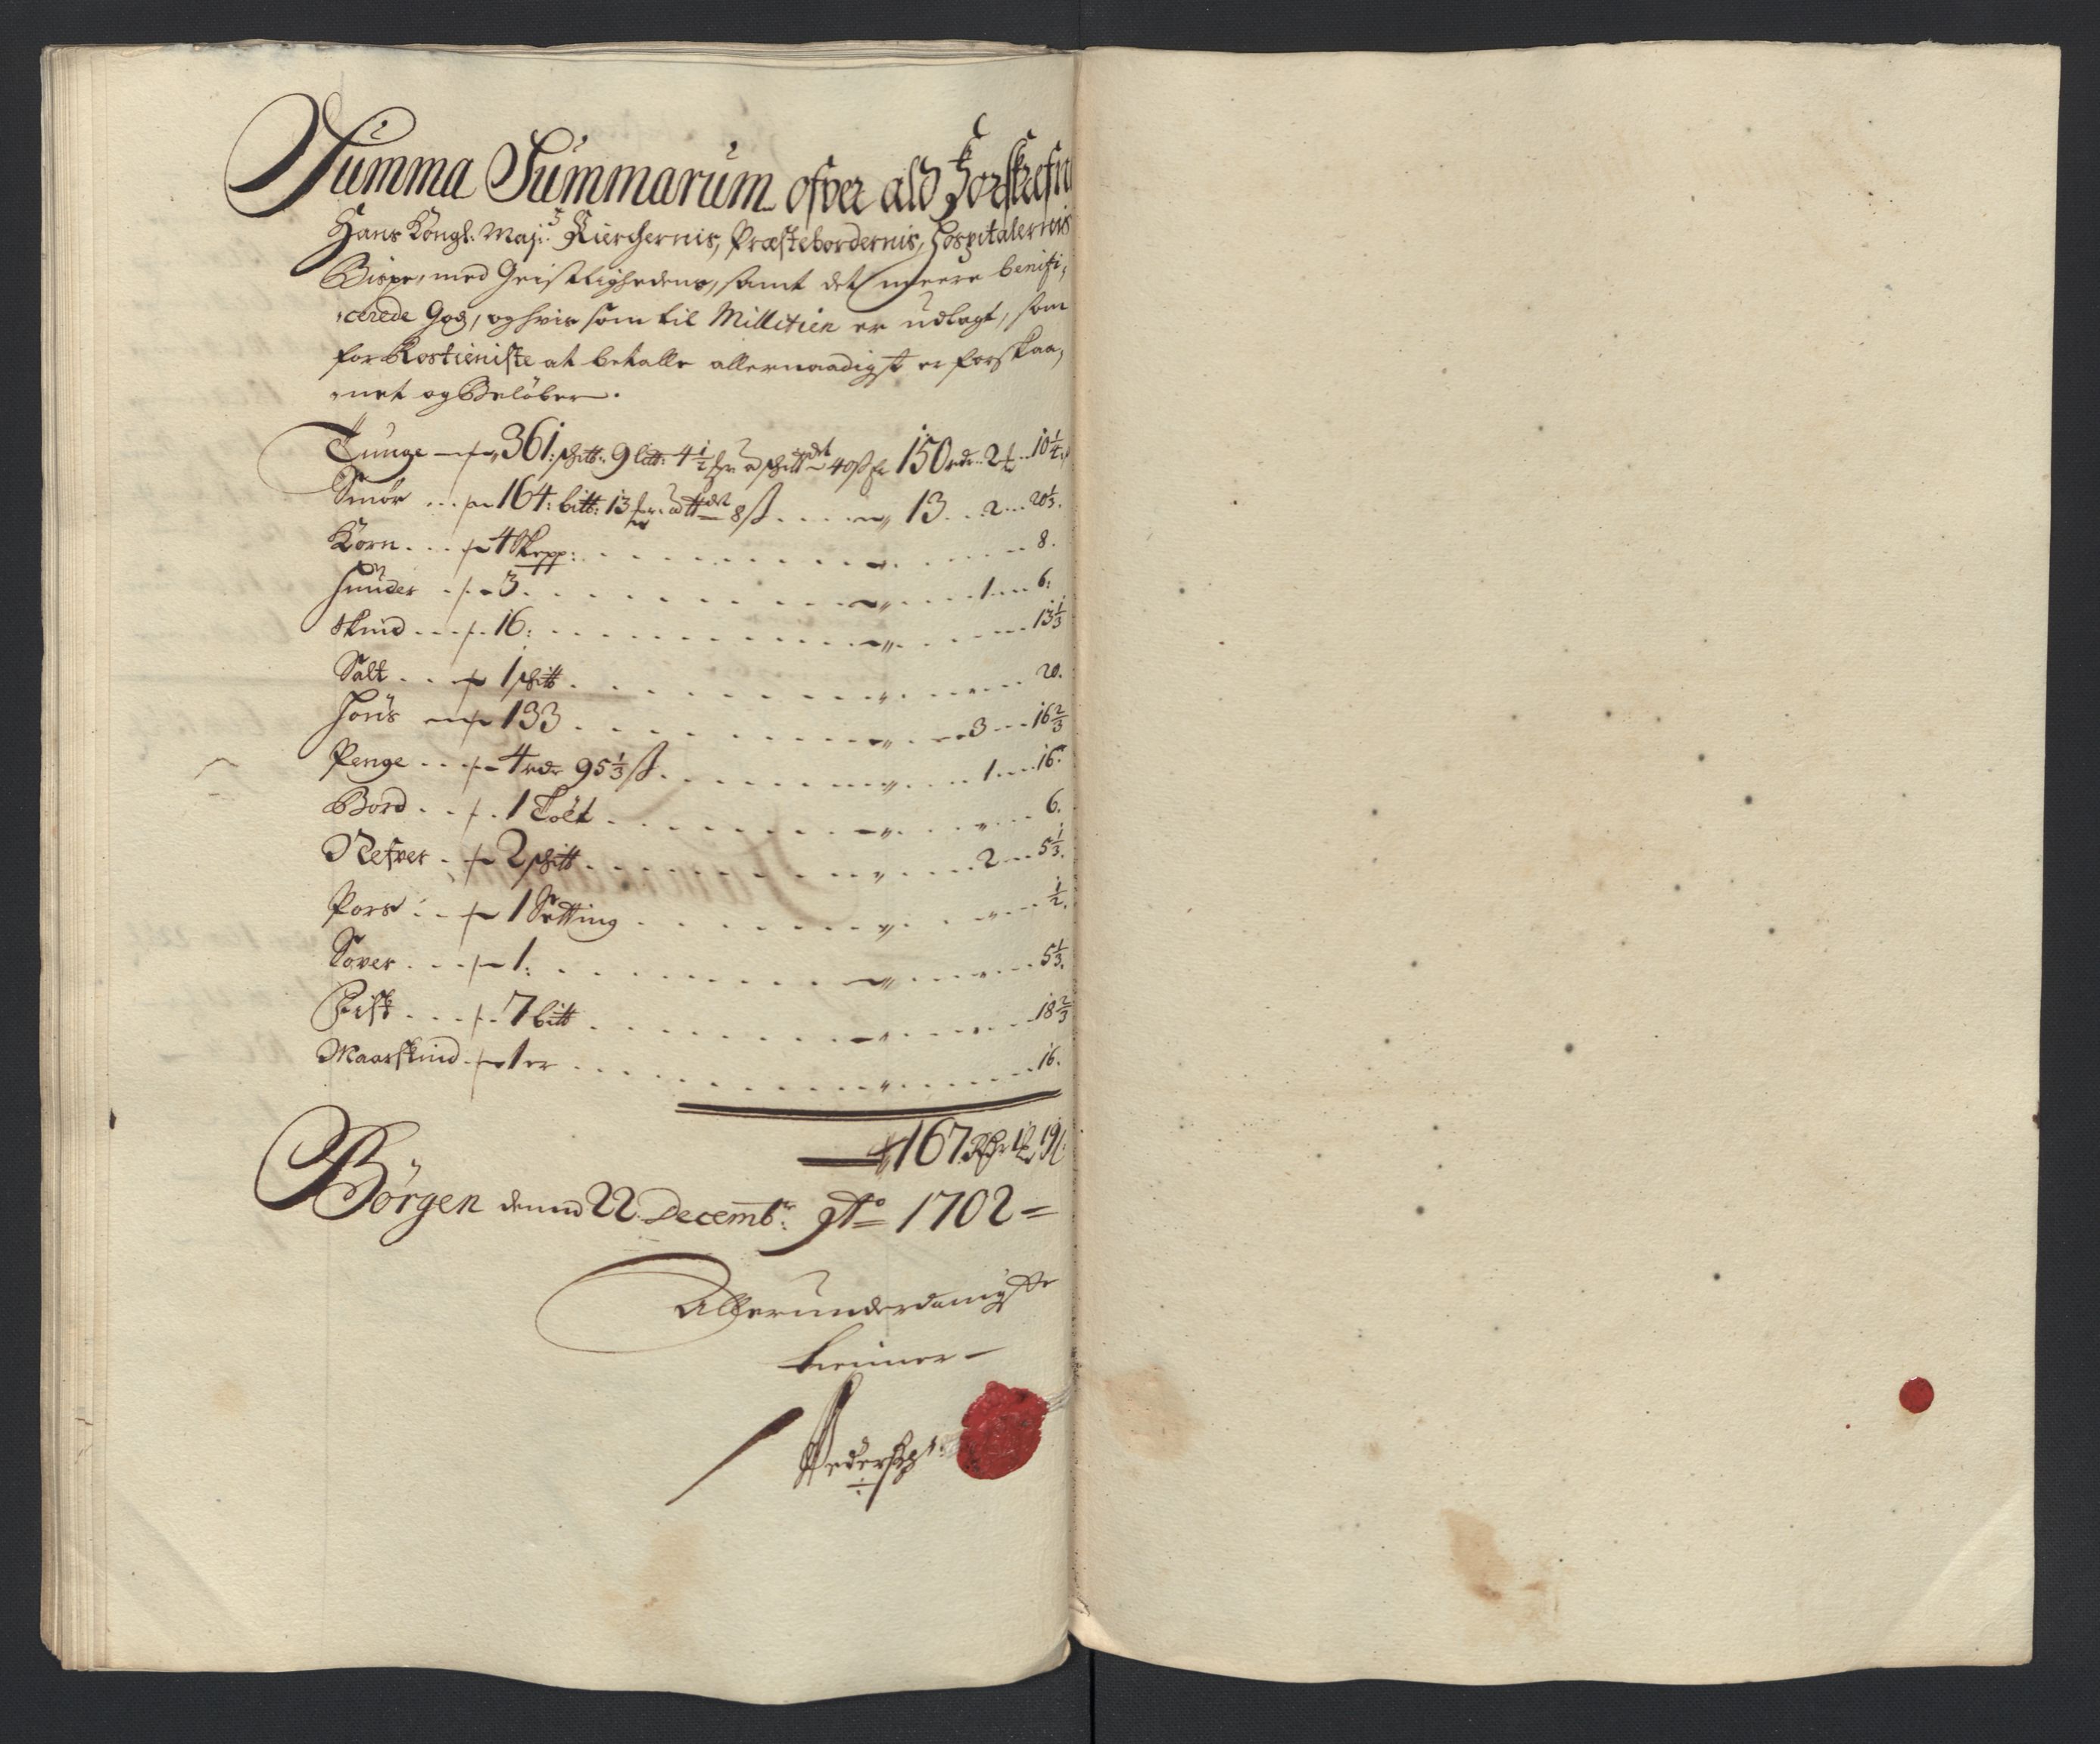 Summa Summarum ofver ald Forskrefn
Hans Kongl: Majts: Kierchernis, Præstebordernis, Hospitalernis
Bispe, med Geistlighedens, samt det meere benifi¸
¸cerede Gods, og hvis som til Millitien er udlagt, som
for Rostieniste at betalle allernaadigst er forskaa¸
¸net og Beløber.
Tunge 361: schtt: 9 bitt: 4 1/2 for a schtt 40 s er 150 rdr 2 10 1/4
Smør 164: bitt: 13 8 s 13 2 20 1/3.
Korn 4 Skepp: 8.
Huuder 3. 1 6:
Skind 16: 13 1/3
Salt 1 schtt 20.
Hous 133 3 16 2/3
Penge 4 rdr 95 1/3 s 1 16.
Bord 1 Tølt 6.
Nefver 2 schtt 2 5 1/3.
Pors 1 Setting 1/2.
Sover 1: 5 1/3.
Fisk 7 bitt 18 2/3
Maarskind 1 er 16.
167 Rdr 1 19
Børgen dend 22 Decembr: Ao 1702 =
Allerunderdanigste
tienner